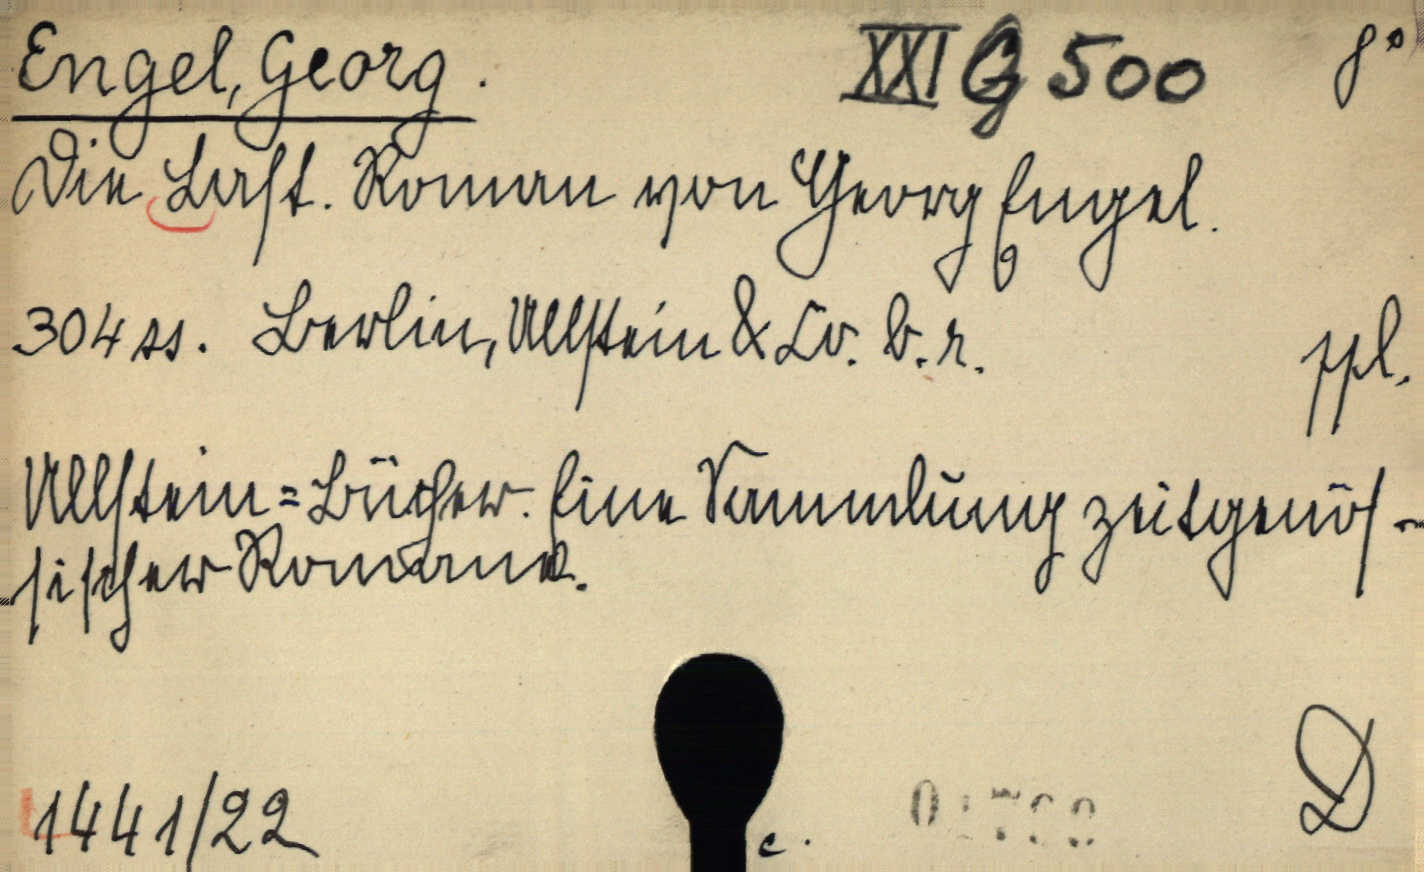 Engel, Georg. XXI G 500 8°
Die Last. Roman von Georg Engel.
304 ss. Berlin, Ullstein & Co. b. r. ppl.
Ullstein=Bücher. Eine Sammlung zeitgenös-
sischer Romane.
D
1441/22
c.